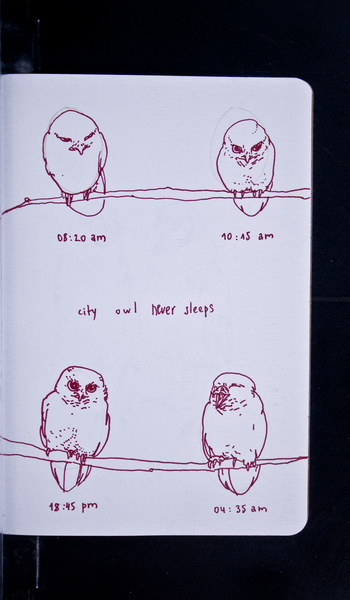 08:20 am
10:15 am
city owl never sleeps
18:45 pm
04:35 am